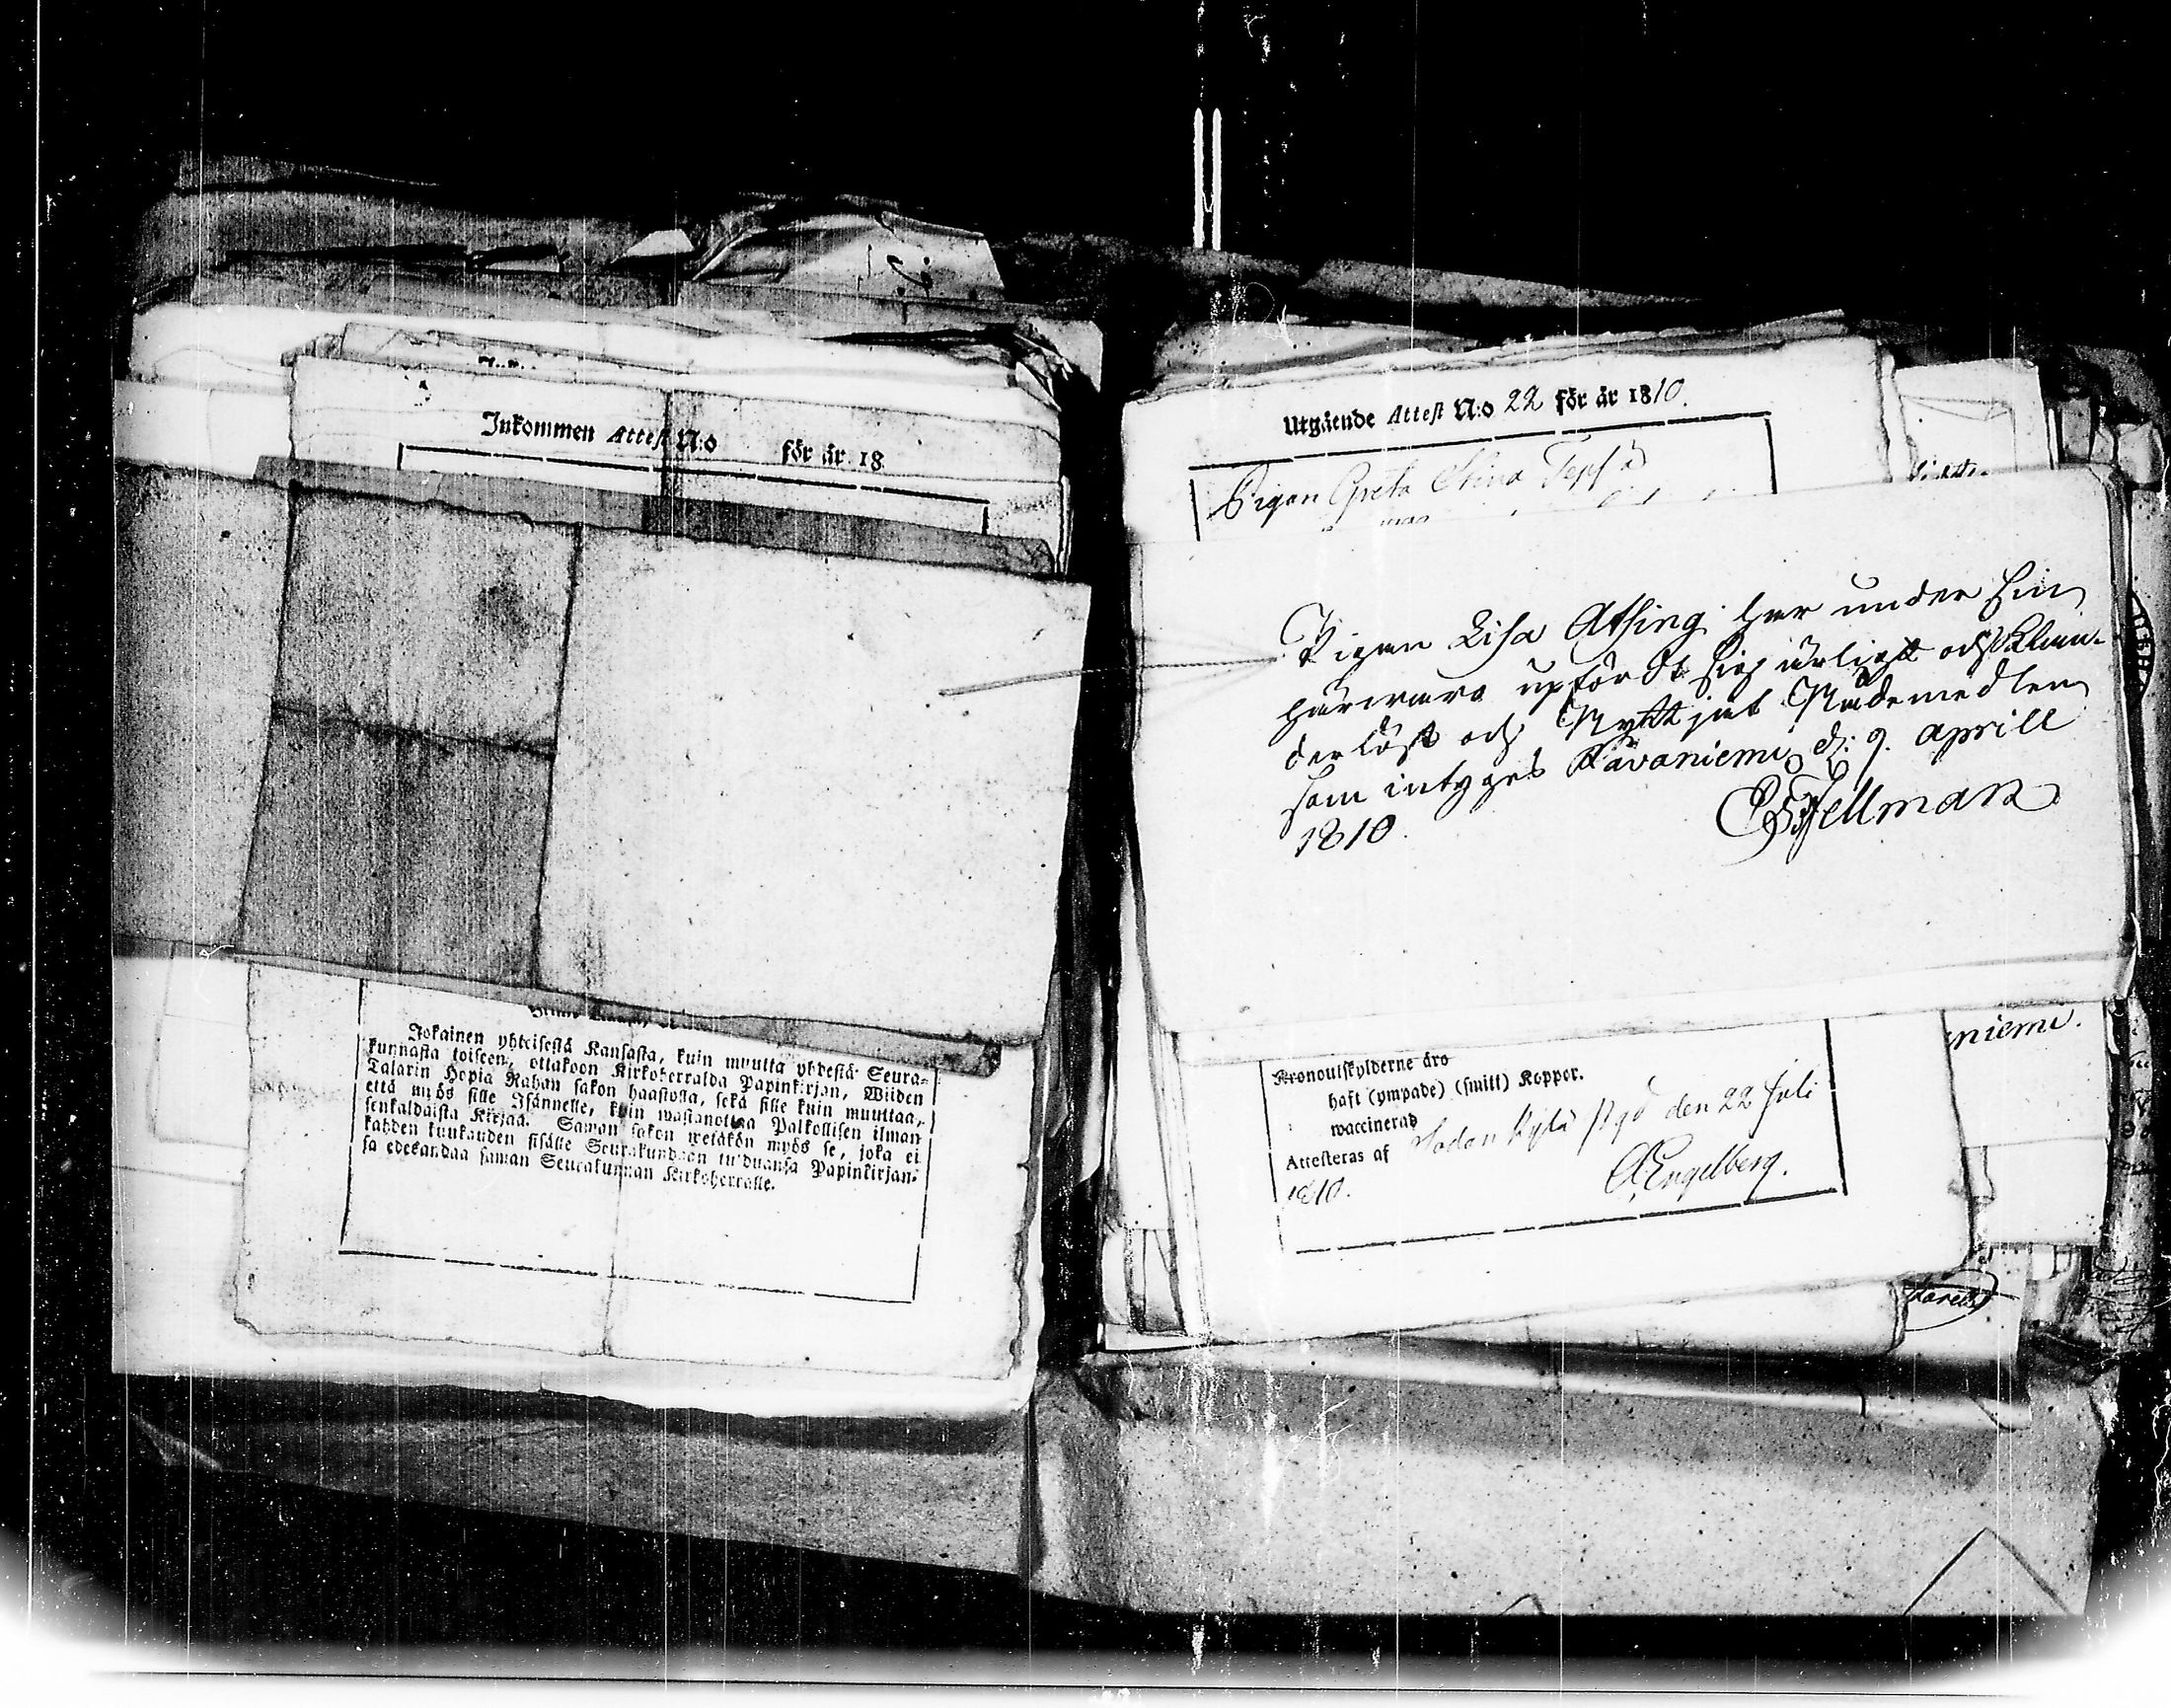 Inkommen Attest N:o för år 18
Jokainen yhteisestä Kansasta, kuin muutta yhdestä Seura-
kunnasta toiseen, ottakoon Kirkoherralda Papinkirjan, Wiiden
Talarin Hopia Rahan sakon haastolla, sekä sille kuin muuttaa,
että myös sille Isännelle, kuin wastanottaa Palkollisen ilman
senkaldaista Kirjaa. Saman sakon wetäkön myös se, joka ei
kahden kuukauden sisälle Seurakundaan tulduansa Papinkirjan-
sa edesandaa saman Seurakunnan Kirkoherralle.
Utgående Attest N:o 22 för år 1810.
Pigan Greta Stina
Pigan Lisa Athing har under sin
härvaro upfördt sig ärligt och Klan-
derlöst och Nyttjat Nådemedlen
som intyges Kävaniemi d: 9. aprill
1810. Fellman
Kronoutskylderne äro
haft (ympade) (smitt) Koppor.
waccinerad
Attesteras af Sodankylä den 22 Juli
1810. Engelberg.
niemi.